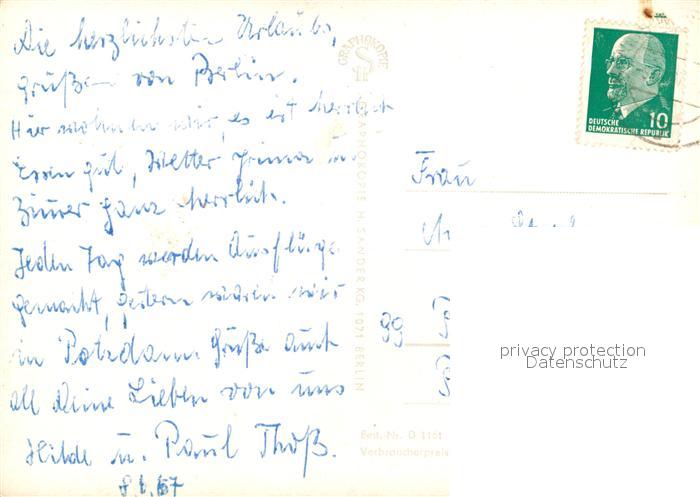 Die herzlichsten Urlaubs,
grüße von Berlin.
Hier wohnen wir, es ist herrlich
Essen gut, Wetter prima u.
Zimmer ganz herrlich.
Jeden Tag werden Ausflüge
gemacht, gestern waren wir
in Potsdam. Grüße auch
all Deine Lieben von uns
Hilde u. Paul Thoß.
GRAPHOKOPIE
GRAPHOKOPIE H. SANDER KG, 1071 BERLIN
Best. Nr. D 1161
Verbraucherpreis
DEUTSCHE
DEMOKRATISCHE REPUBLIK
10
Frau
99
privacy protection
Datenschutz